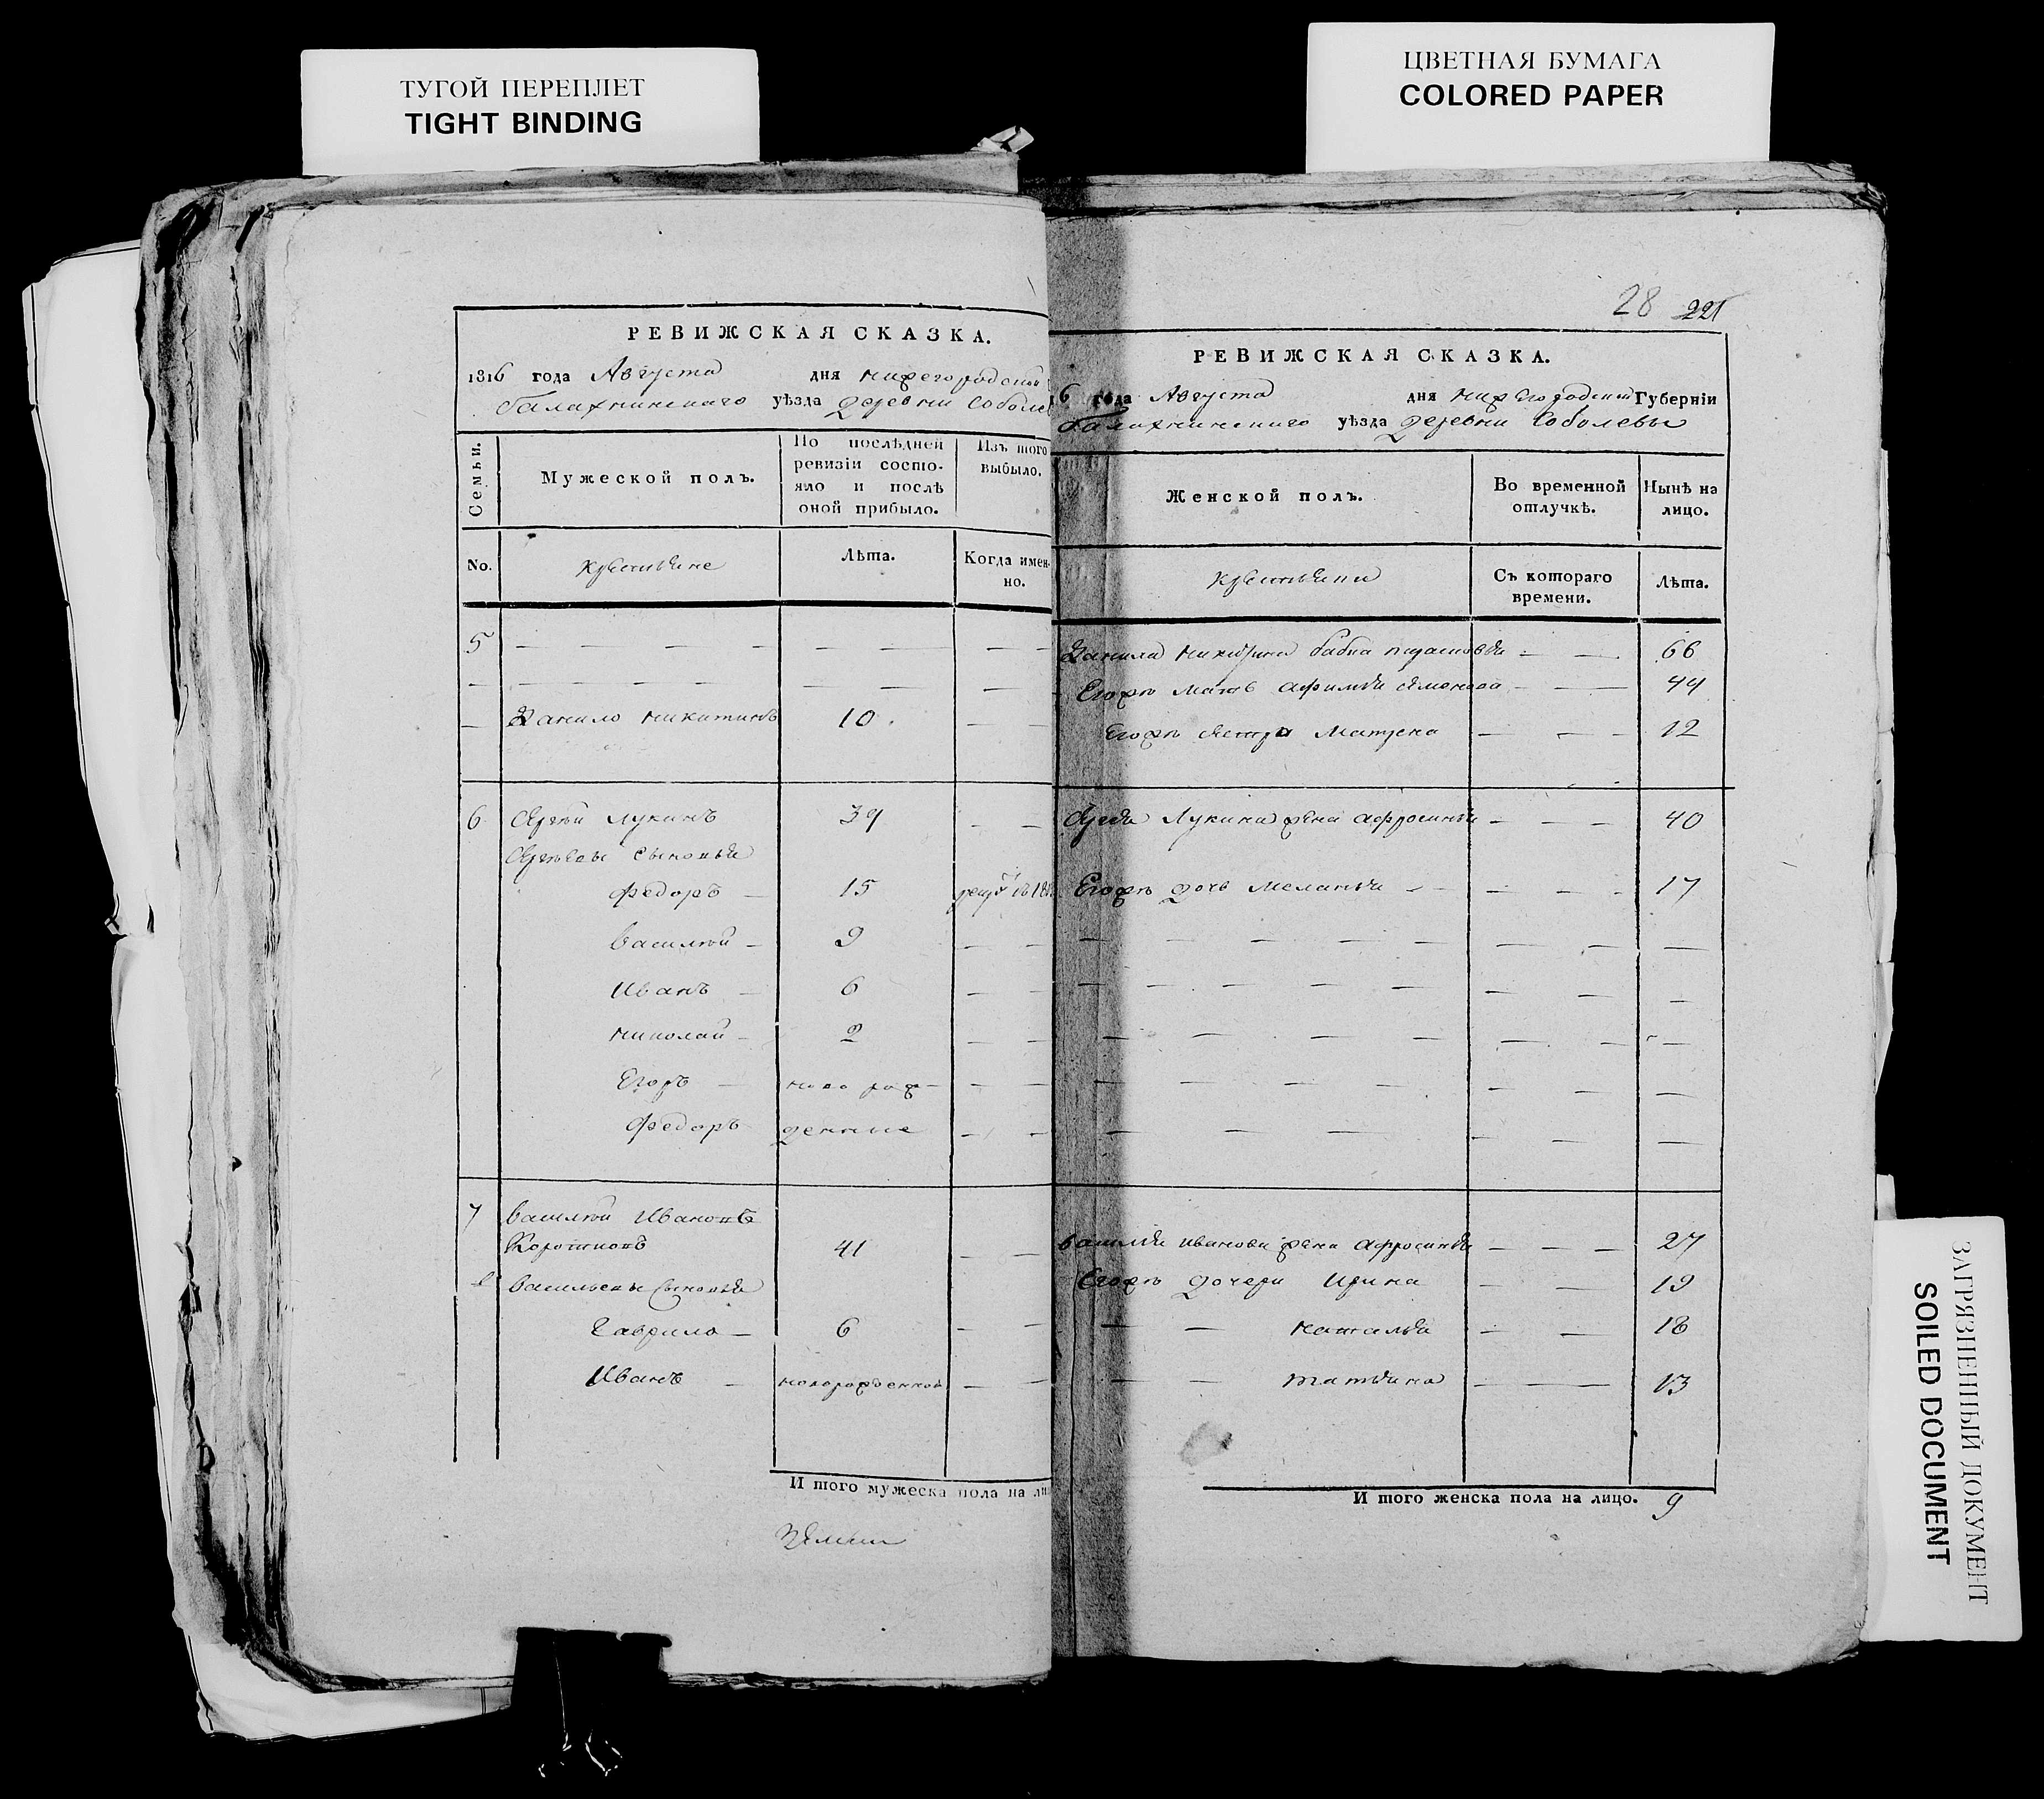 ТУГОЙ ПЕРЕПЛЕТ
TIGHT BINDING
ЦВЕТНАЯ БУМАГА
COLORED PAPER
РЕВИЖСКАЯ СКАЗКА.
1816 года Августа дня нижегородской
балахнинскаго уѣзда деревни Соболев
Семьи.
Мужеской полъ.
По послѣдней
ревизіи состо-
яло и послѣ
оной прибыло.
Изъ того
выбыло.
No.
крестьяне
Лѣта.
Когда имен-
но.
5 — — — —
— — — —
— Данило никитинъ 10 — —
6 Сергѣй лукинъ 39 — —
Сергѣевы сыновья
федоръ — 15
василий — 9 — —
Иванъ — 6 — —
николай — 2 — —
Егоръ — ново рож- — —
федоръ денные — —
7 василий Ивановъ
Коротковъ 41 — —
васильевы сыновья
Гаврило — 6 — —
Иванъ — новорожденной — —
И того мужеска пола на ли
28 221
РЕВИЖСКАЯ СКАЗКА.
6 года Августа дня нижегородской Губерніи
балахнинскаго уѣзда деревни Соболевы
Женской полъ.
Во временной
отлучкѣ.
Нынѣ на
лицо.
крестьянки
Съ котораго
времени.
Лѣта.
Данила никитина бабка — — 66
Егожъ мать афимья семенова — — 44
Егожъ сестра матрена — — — 12
Сергея Лукина жена афросинья — — — 40
Егожъ дочь меланья — — — 17
— — — — —
— — — — —
— — — — —
— — — — —
— — — — —
василья иванова жена афросинья — — — 27
Егожъ дочери Ирина — — 19
— — наталья — — 18
— — татьяна — — — 13
И того женска пола на лицо. 9
ЗАГРЯЗНЕННЫЙ ДОКУМЕНТ
SOILED DOCUMENT